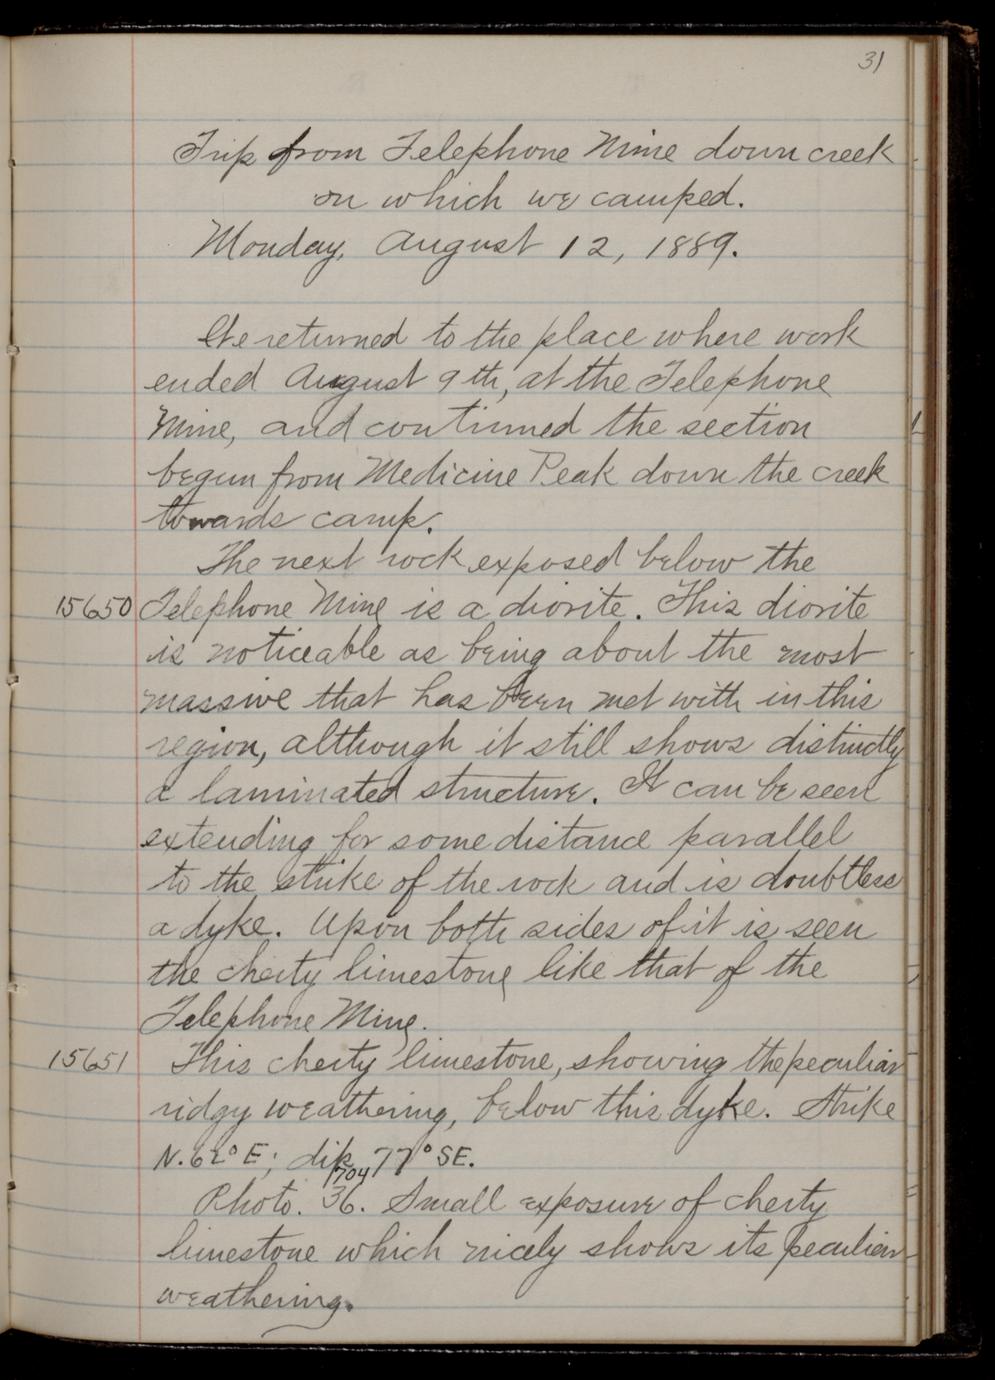 31
Trip from Telephone Mine down creek
on which we camped.
Monday, August 12, 1889.
We returned to the place where work
ended August 9th, at the Telephone
Mine, and continued the section
begun from Medicine Peak down the creek
towards camp.
The next rock exposed below the
15650 Telephone Mine is a diorite. This diorite
is noticeable as being about the most
massive that has been met with in this
region, although it still shows distinctly
a laminated structure. It can be seen
extending for some distance parallel
to the strike of the rock and is doubtless
a dyke. Upon both sides of it is seen
the cherty limestone like that of the
Telephone Mine.
15651 This cherty limestone, showing the peculiar
ridgy weathering, below this dyke. Strike
N. 62° E; dip 77° SE.
1704
Photo. 36. Small exposure of cherty
limestone which nicely shows its peculiar
weathering.